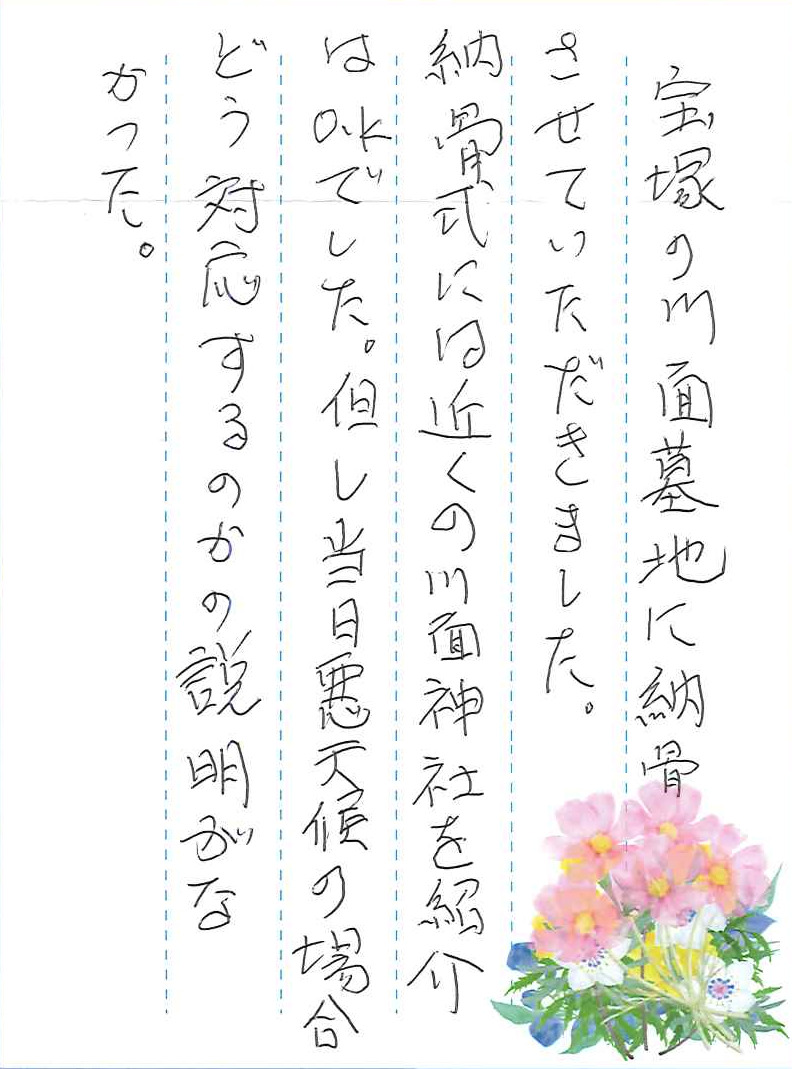 宝塚の川面墓地に納骨
させていただきました。
納骨式には近くの川面神社を紹介
はO.Kでした。但し当日悪天候の場合
どう対応するのかの説明がな
かった。